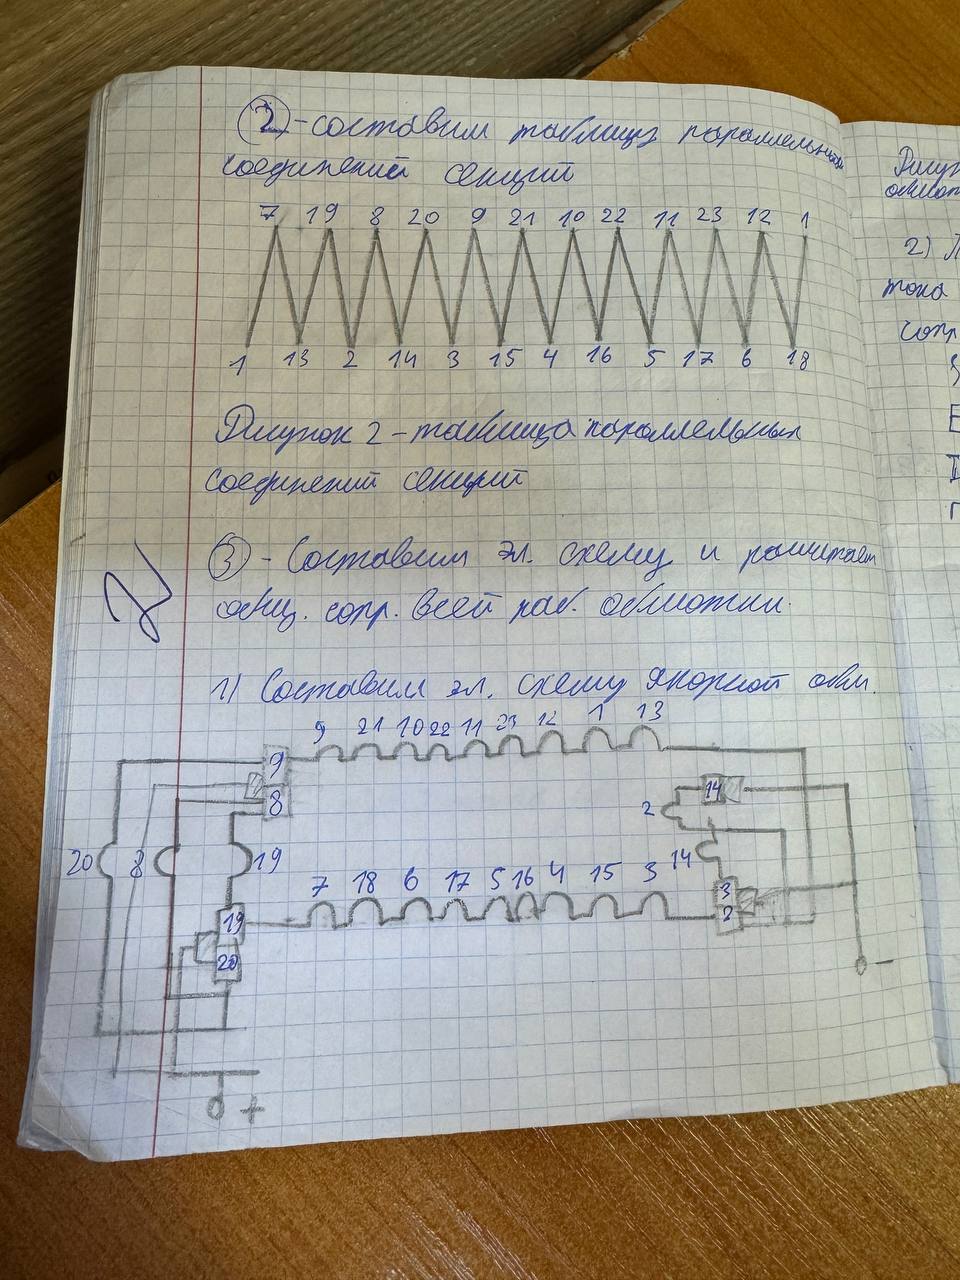 2 - составим таблицу параллельных
соединений секций
7 19 8 20 9 21 10 22 11 23 12 1
1 13 2 14 3 15 4 16 5 17 6 18
Рисунок 2 - таблица параллельных
соединений секций
3 - Составим эл. схему и
общ. сопр. всей обмотки.
1) Составим эл. схему якорной обм.
9 21 10 22 11 23 12 1 13
9
8
14
2
20 8 19
14
7 18 6 17 5 16 4 15 3
3
2
19
20
-
+
2)
тока
сопр